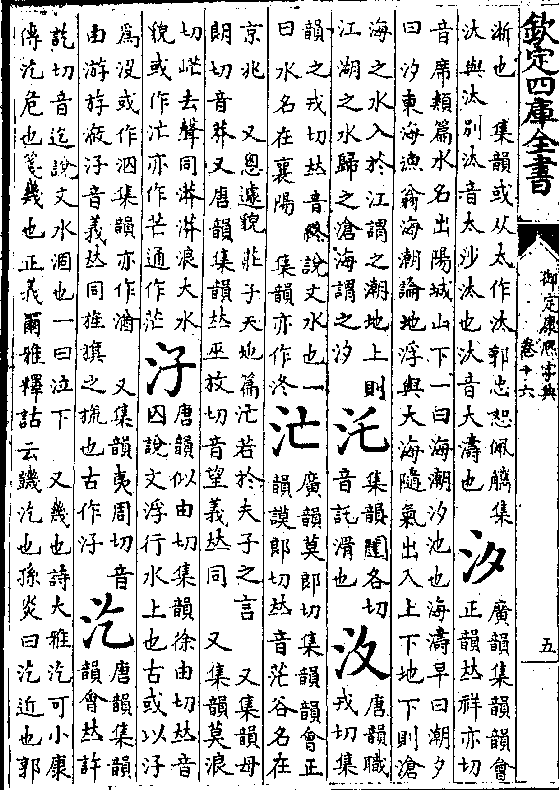 欽定四庫全書
御定康熙字典
卷十六
五
浙也　集韻或从太作汰郭忠恕佩觿集
汰與汏別汰音太沙汰也汏音大濤也
汐
廣韻集韻韻會
正韻𠀤祥亦切
音席類篇水名出陽城山下一曰海潮汐池也海濤早曰潮夕
曰汐東海漁翁海潮論地浮與大海隨氣出入上下地下則滄
海之水入於江謂之潮地上則
江湖之水歸之滄海謂之汐
汑
集韻闥各切
音託滑也
汷
唐韻職
戎切集
韻之戎切𠀤音終說文水也一
曰水名在襄陽　集韻亦作泈
汒
廣韻莫郎切集韻韻會正
韻謨郎切𠀤音茫谷名在
京兆　又悤遽貌莊子天地篇汒若於夫子之言　又集韻母
朗切音莽又唐韻集韻𠀤巫放切音望義𠀤同　又集韻莫浪
切㟐去聲同漭漭浪大水
貌或作汒亦作芒通作茫
汓
唐韻似由切集韻徐由切𠀤音
囚說文浮行水上也古或以汓
爲沒或作泅集韻亦作㴍　又集韻夷周切音
由游斿㳺汓音義𠀤同旌旗之旒也古作汓
汔
唐韻集韻
韻會𠀤許
訖切音迄說文水涸也一曰泣下　又幾也詩大雅汔可小康
傳汔危也箋幾也正義爾雅釋詁云䥓汔也孫炎曰汔近也郭